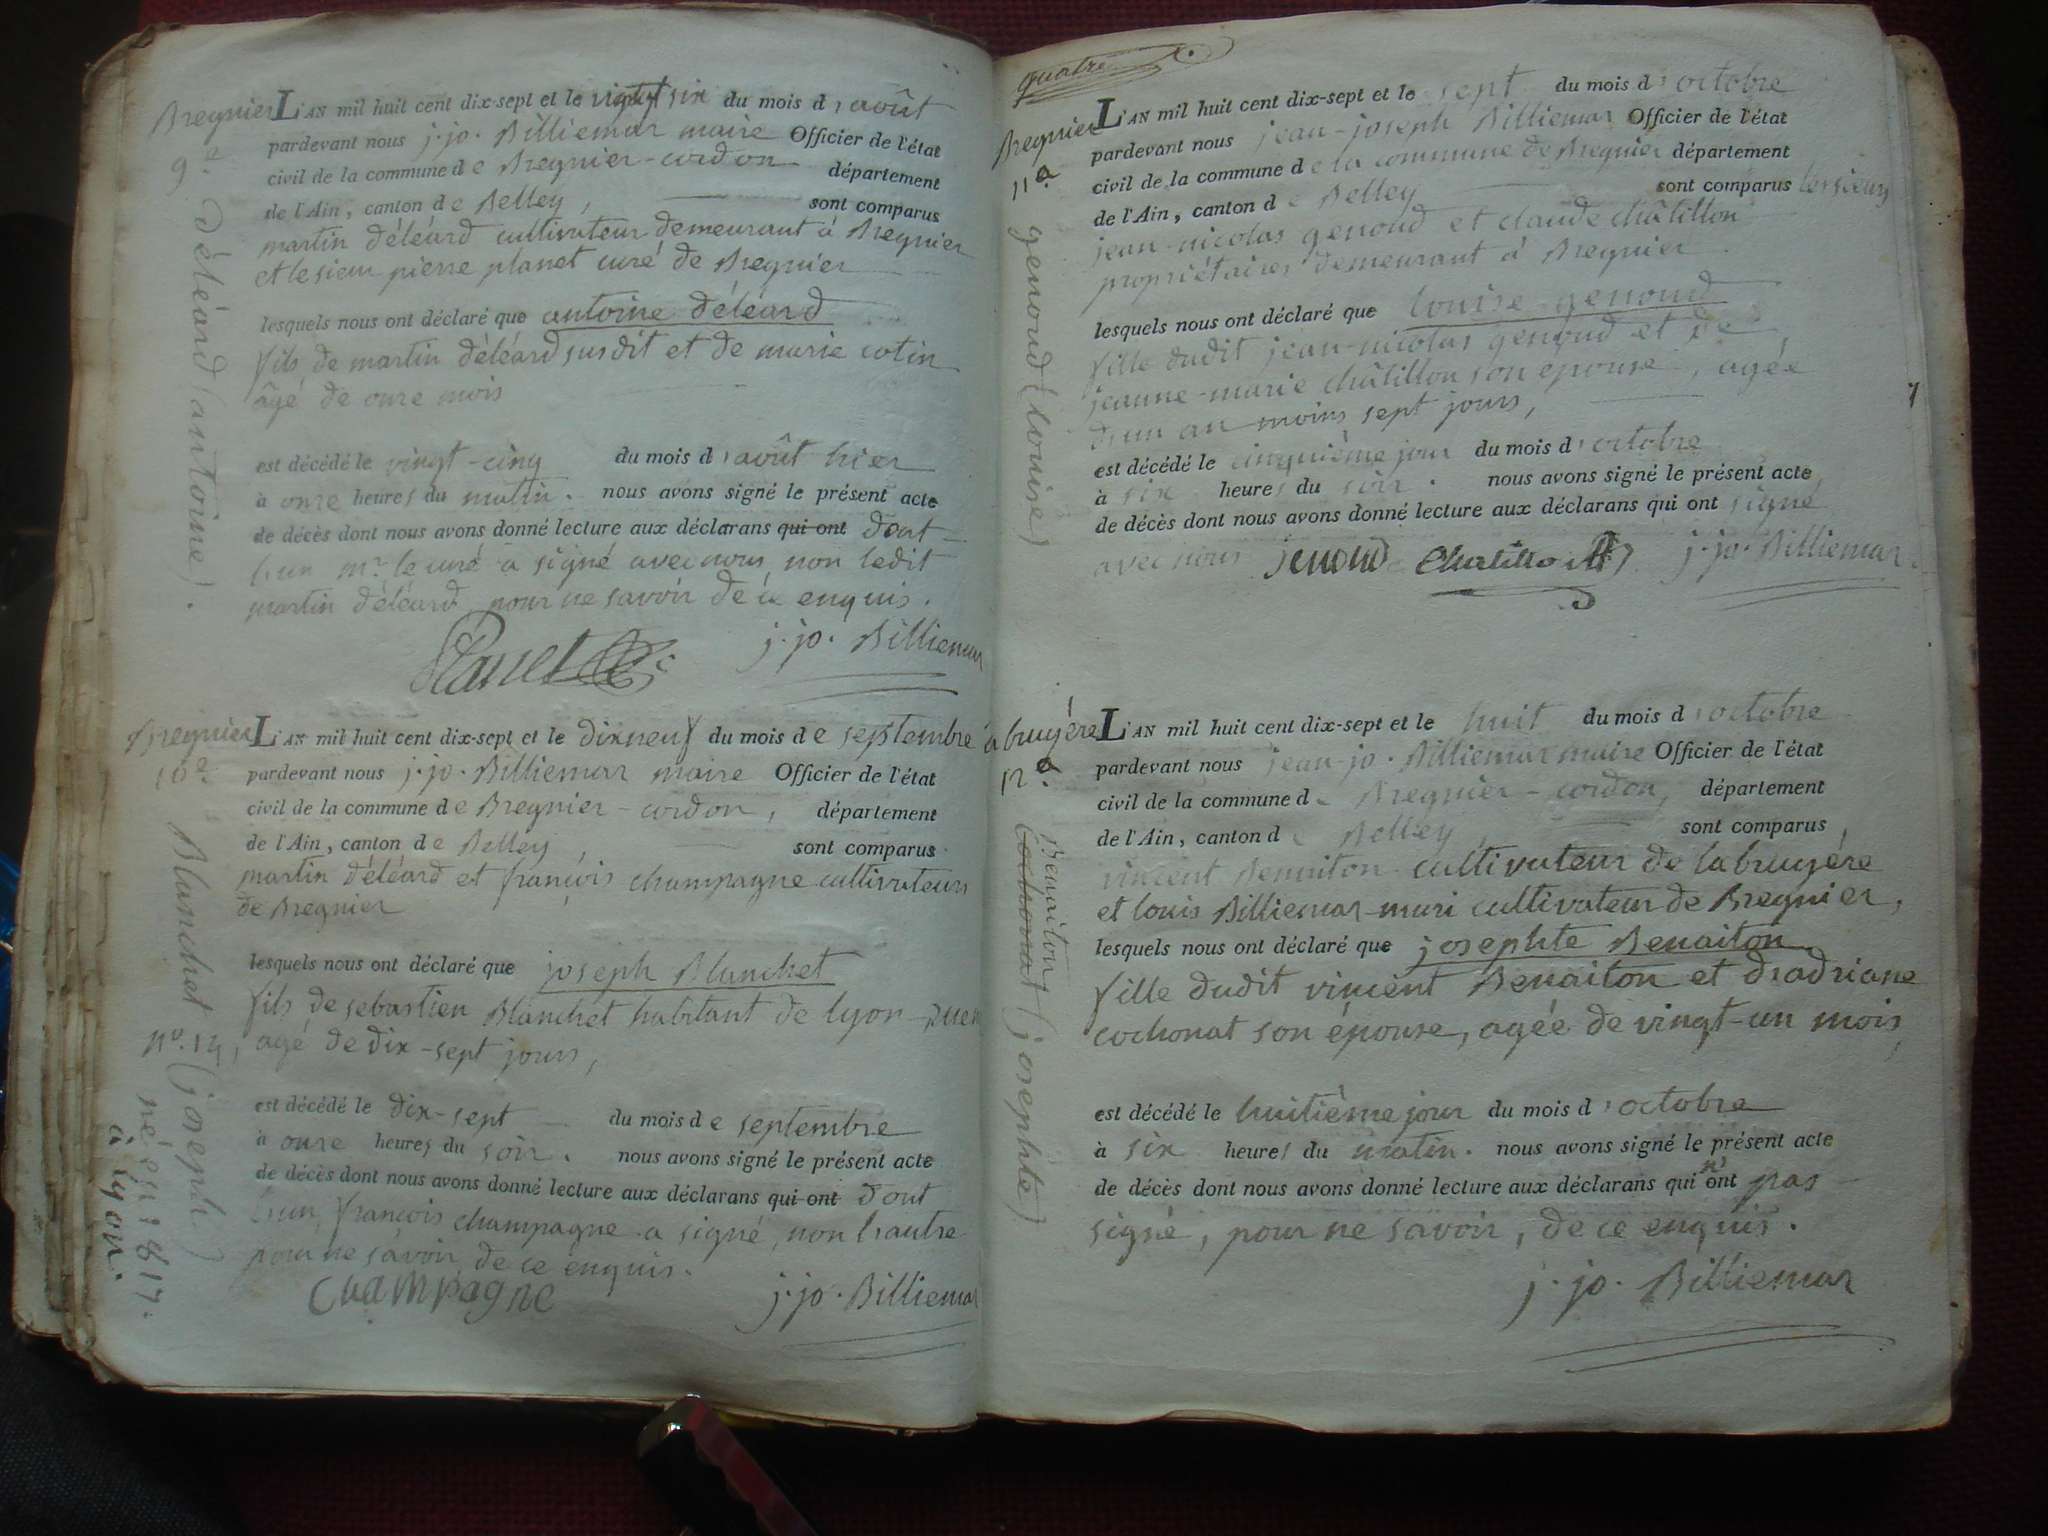 Bregnier L'AN mil huit cent dix-sept et le vingt six du mois d'août
9e. pardevant nous j. jo. Billiemar maire Officier de l'état
civil de la commune de Bregnier-cordon département
de l'Ain, canton de Belley, sont comparus
martin déléard cultivateur demeurant à Bregnier
et le sieur pierre planet curé de Bregnier
lesquels nous ont déclaré que antoine déléard
fils de martin déléard susdit et de marie cotin
âgé de onze mois
est décédé le vingt-cinq du mois d'août hier
à onze heures du matin. nous avons signé le présent acte
de décès dont nous avons donné lecture aux déclarans qui ont dont
l'un mr. le curé a signé avec nous, non ledit
martin déléard, pour ne savoir de ce enquis.
Planet j. jo. Billiemar
déléard (antoine).
Bregnier L'AN mil huit cent dix-sept et le dixneuf du mois de septembre
10e. pardevant nous j. jo. Billiemar maire Officier de l'état
civil de la commune de Bregnier-cordon, département
de l'Ain, canton de Belley sont comparus
martin déléard et françois champagne cultivateurs
de Bregnier
lesquels nous ont déclaré que joseph Blanchet
fils de sebastien Blanchet habitant de lyon
no. 14, agé de dix-sept jours,
est décédé le dix-sept du mois de septembre
à onze heures du soir. nous avons signé le présent acte
de décès dont nous avons donné lecture aux déclarans qui ont dont
l'un, françois champagne a signé, non l'autre
pour ne savoir, de ce enquis.
Champagne j. jo. Billiemar
Blanchet (joseph)
né en 1817.
à lyon.
quatre
Bregnier L'AN mil huit cent dix-sept et le sept du mois d'octobre
11e. pardevant nous jean-joseph Billiemar Officier de l'état
civil de la commune de la commune de Bregnier département
de l'Ain, canton de Belley sont comparus les sieurs
jean-nicolas genoud et claude châtillon
propriétaires demeurant à Bregnier
lesquels nous ont déclaré que louise genoud
fille dudit jean-nicolas genoud et de
jeanne-marie châtillon son épouse, agée
d'un an moins sept jours,
est décédé le cinquième jour du mois d'octobre
à six heures du soir. nous avons signé le présent acte
de décès dont nous avons donné lecture aux déclarans qui ont signé
avec nous jenoud Chatillon j. jo. Billiemar
genoud (louise)
la bruyère L'AN mil huit cent dix-sept et le huit du mois d'octobre
12e. pardevant nous jean-jo. Billiemar maire Officier de l'état
civil de la commune de Bregnier-cordon, département
de l'Ain, canton de Belley, sont comparus,
vincent Benaiton cultivateur de labruyére
et louis Billiemar-muri cultivateur de Bregnier,
lesquels nous ont déclaré que josephte Benaiton
fille dudit vincent Benaiton et d'adriane
cochonat son épouse, agée de vingt-un mois,
est décédé le huitième jour du mois d'octobre
à six heures du matin. nous avons signé le présent acte
de décès dont nous avons donné lecture aux déclarans qui n'ont pas
signé, pour ne savoir, de ce enquis.
j. jo. Billiemar
Benaiton
cochonat (josephte)